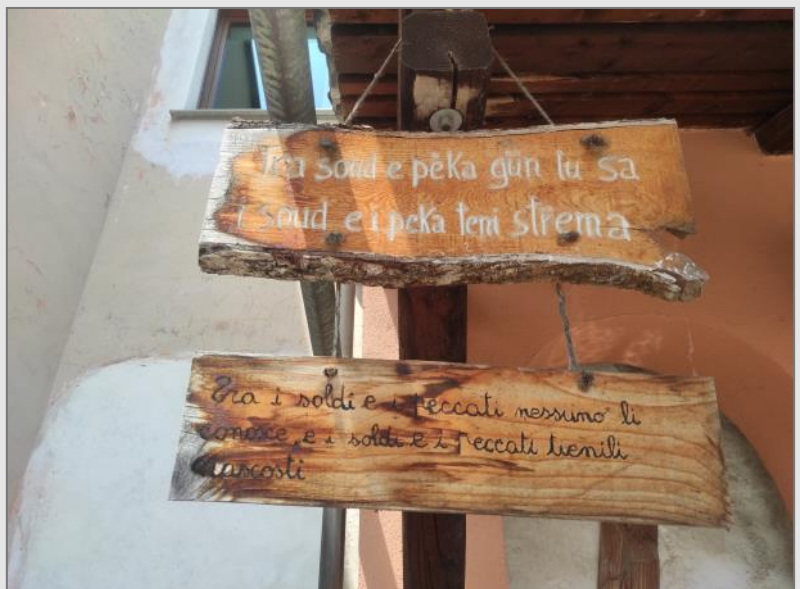 Tra soud e pëka gün lu sa
i soud e i peka teni strema
Tra i soldi e i peccati nessuno li
conosce, e i soldi e i peccati tienili
nascosti